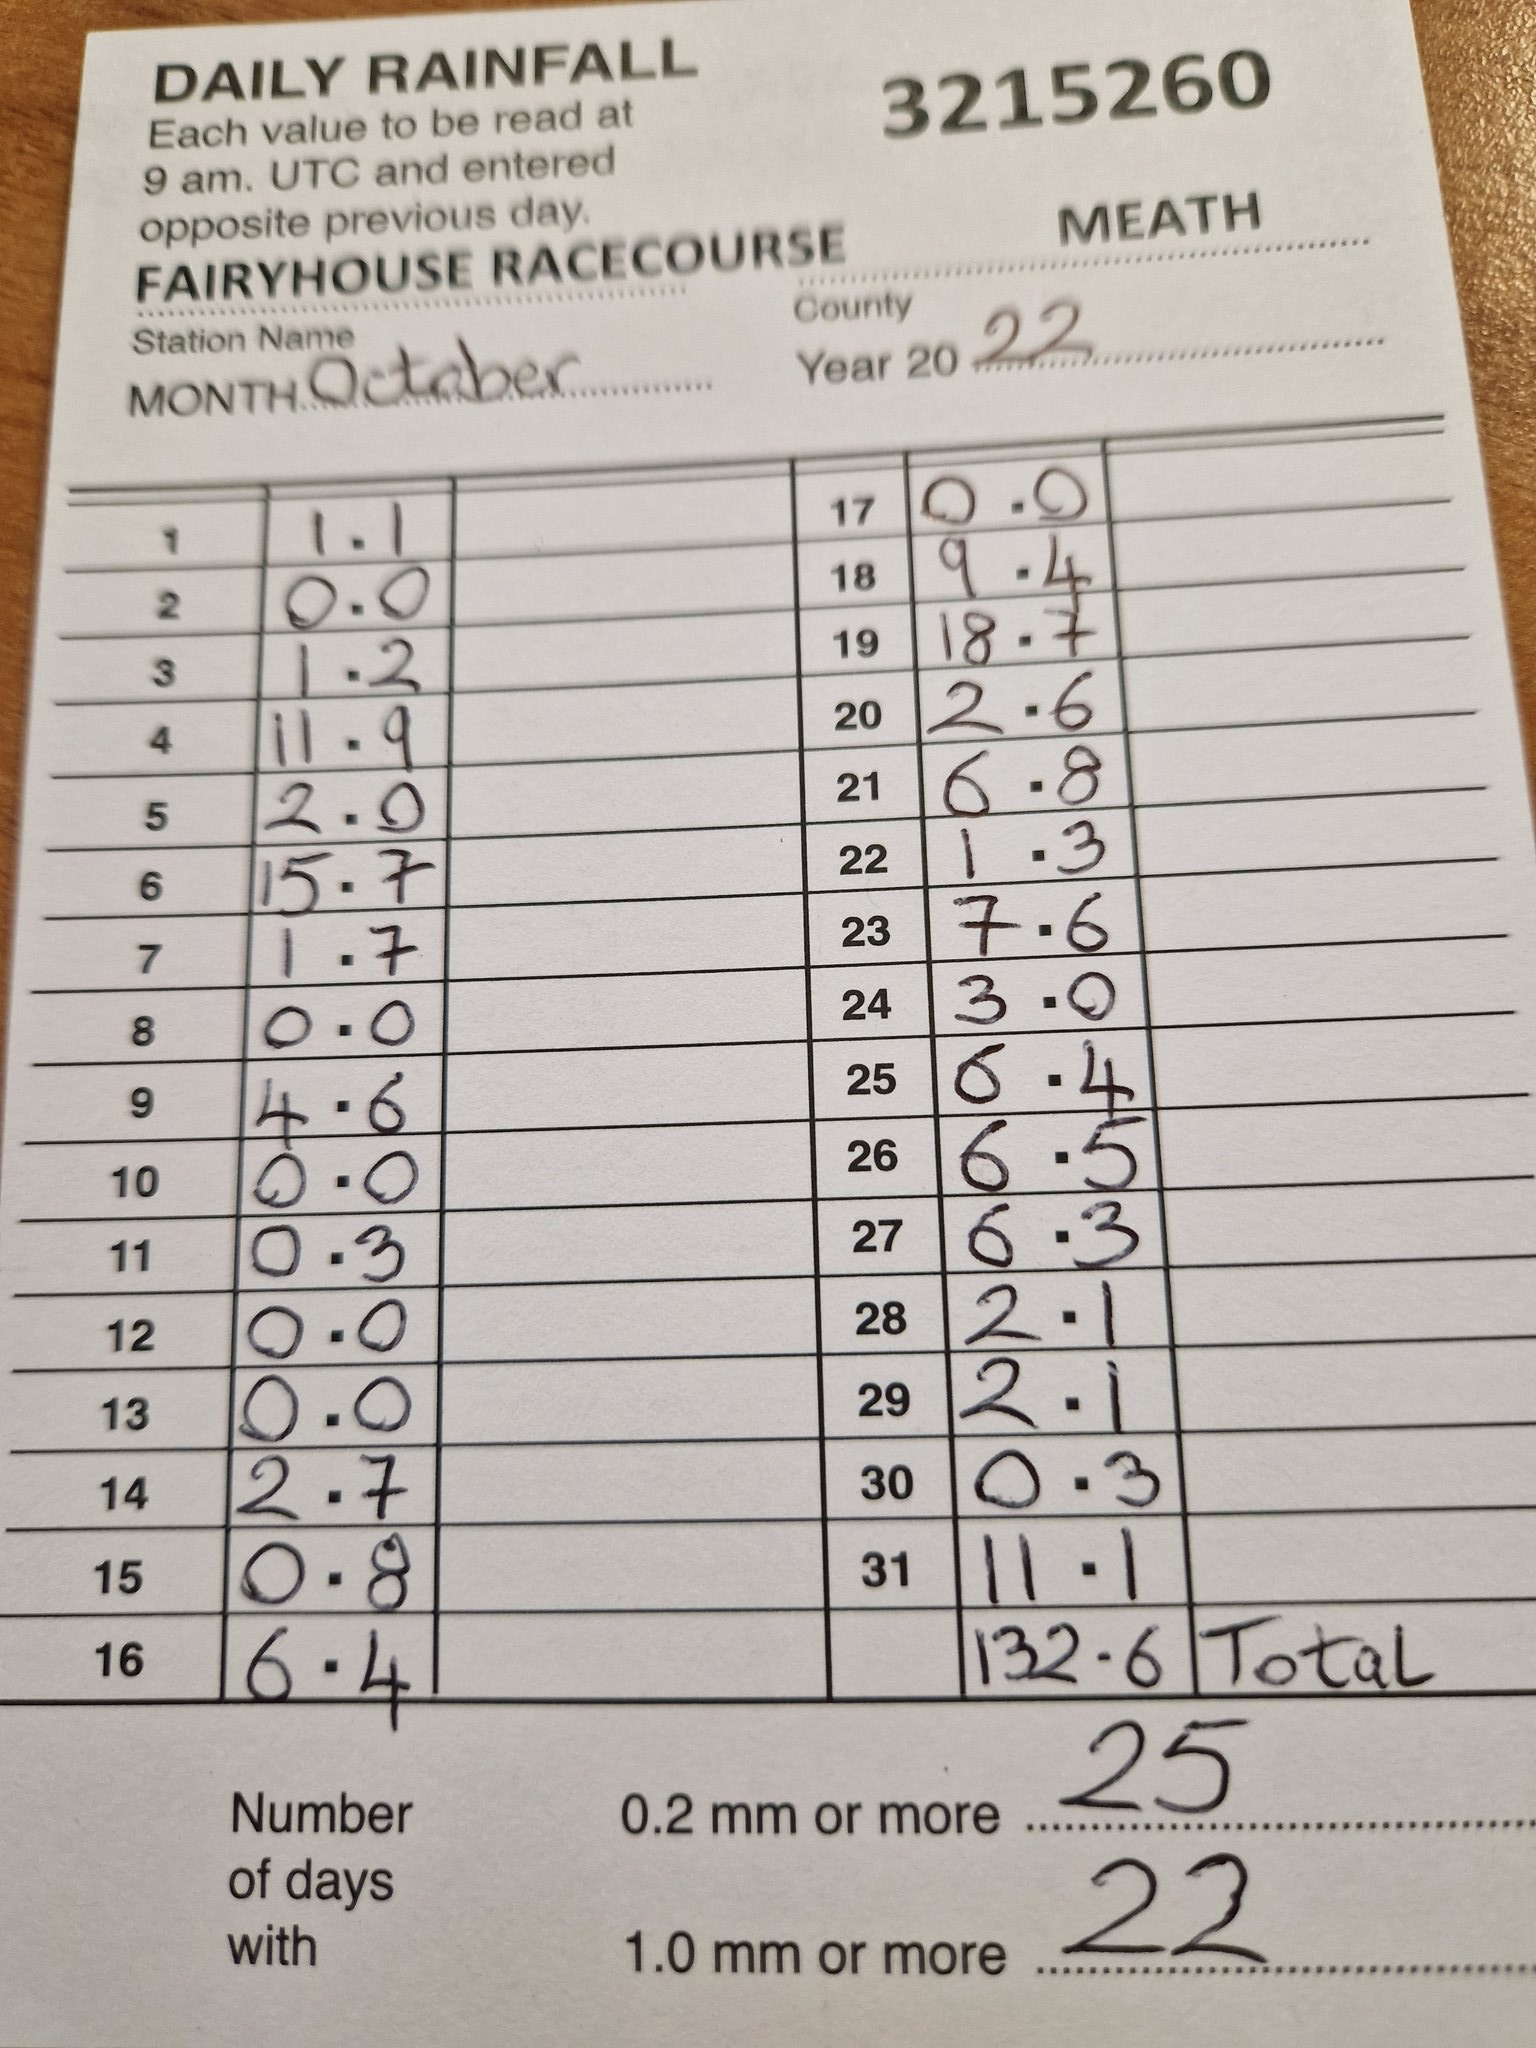 DAILY RAINFALL
3215260
Each value to be read at
9 am. UTC and entered
opposite previous day.
FAIRYHOUSE RACECOURSE
MEATH
Station Name
County
MONTH October
Year 20 22
1 1.1
2 0.0
3 1.2
4 11.9
5 2.0
6 15.7
7 1.7
8 0.0
9 4.6
10 0.0
11 0.3
12 0.0
13 0.0
14 2.7
15 0.8
16 6.4
17 0.0
18 9.4
19 18.7
20 2.6
21 6.8
22 1.3
23 7.6
24 3.0
25 6.4
26 6.5
27 6.3
28 2.1
29 2.1
30 0.3
31 11.1
132.6 Total
Number
of days
with
0.2 mm or more 25
1.0 mm or more 22